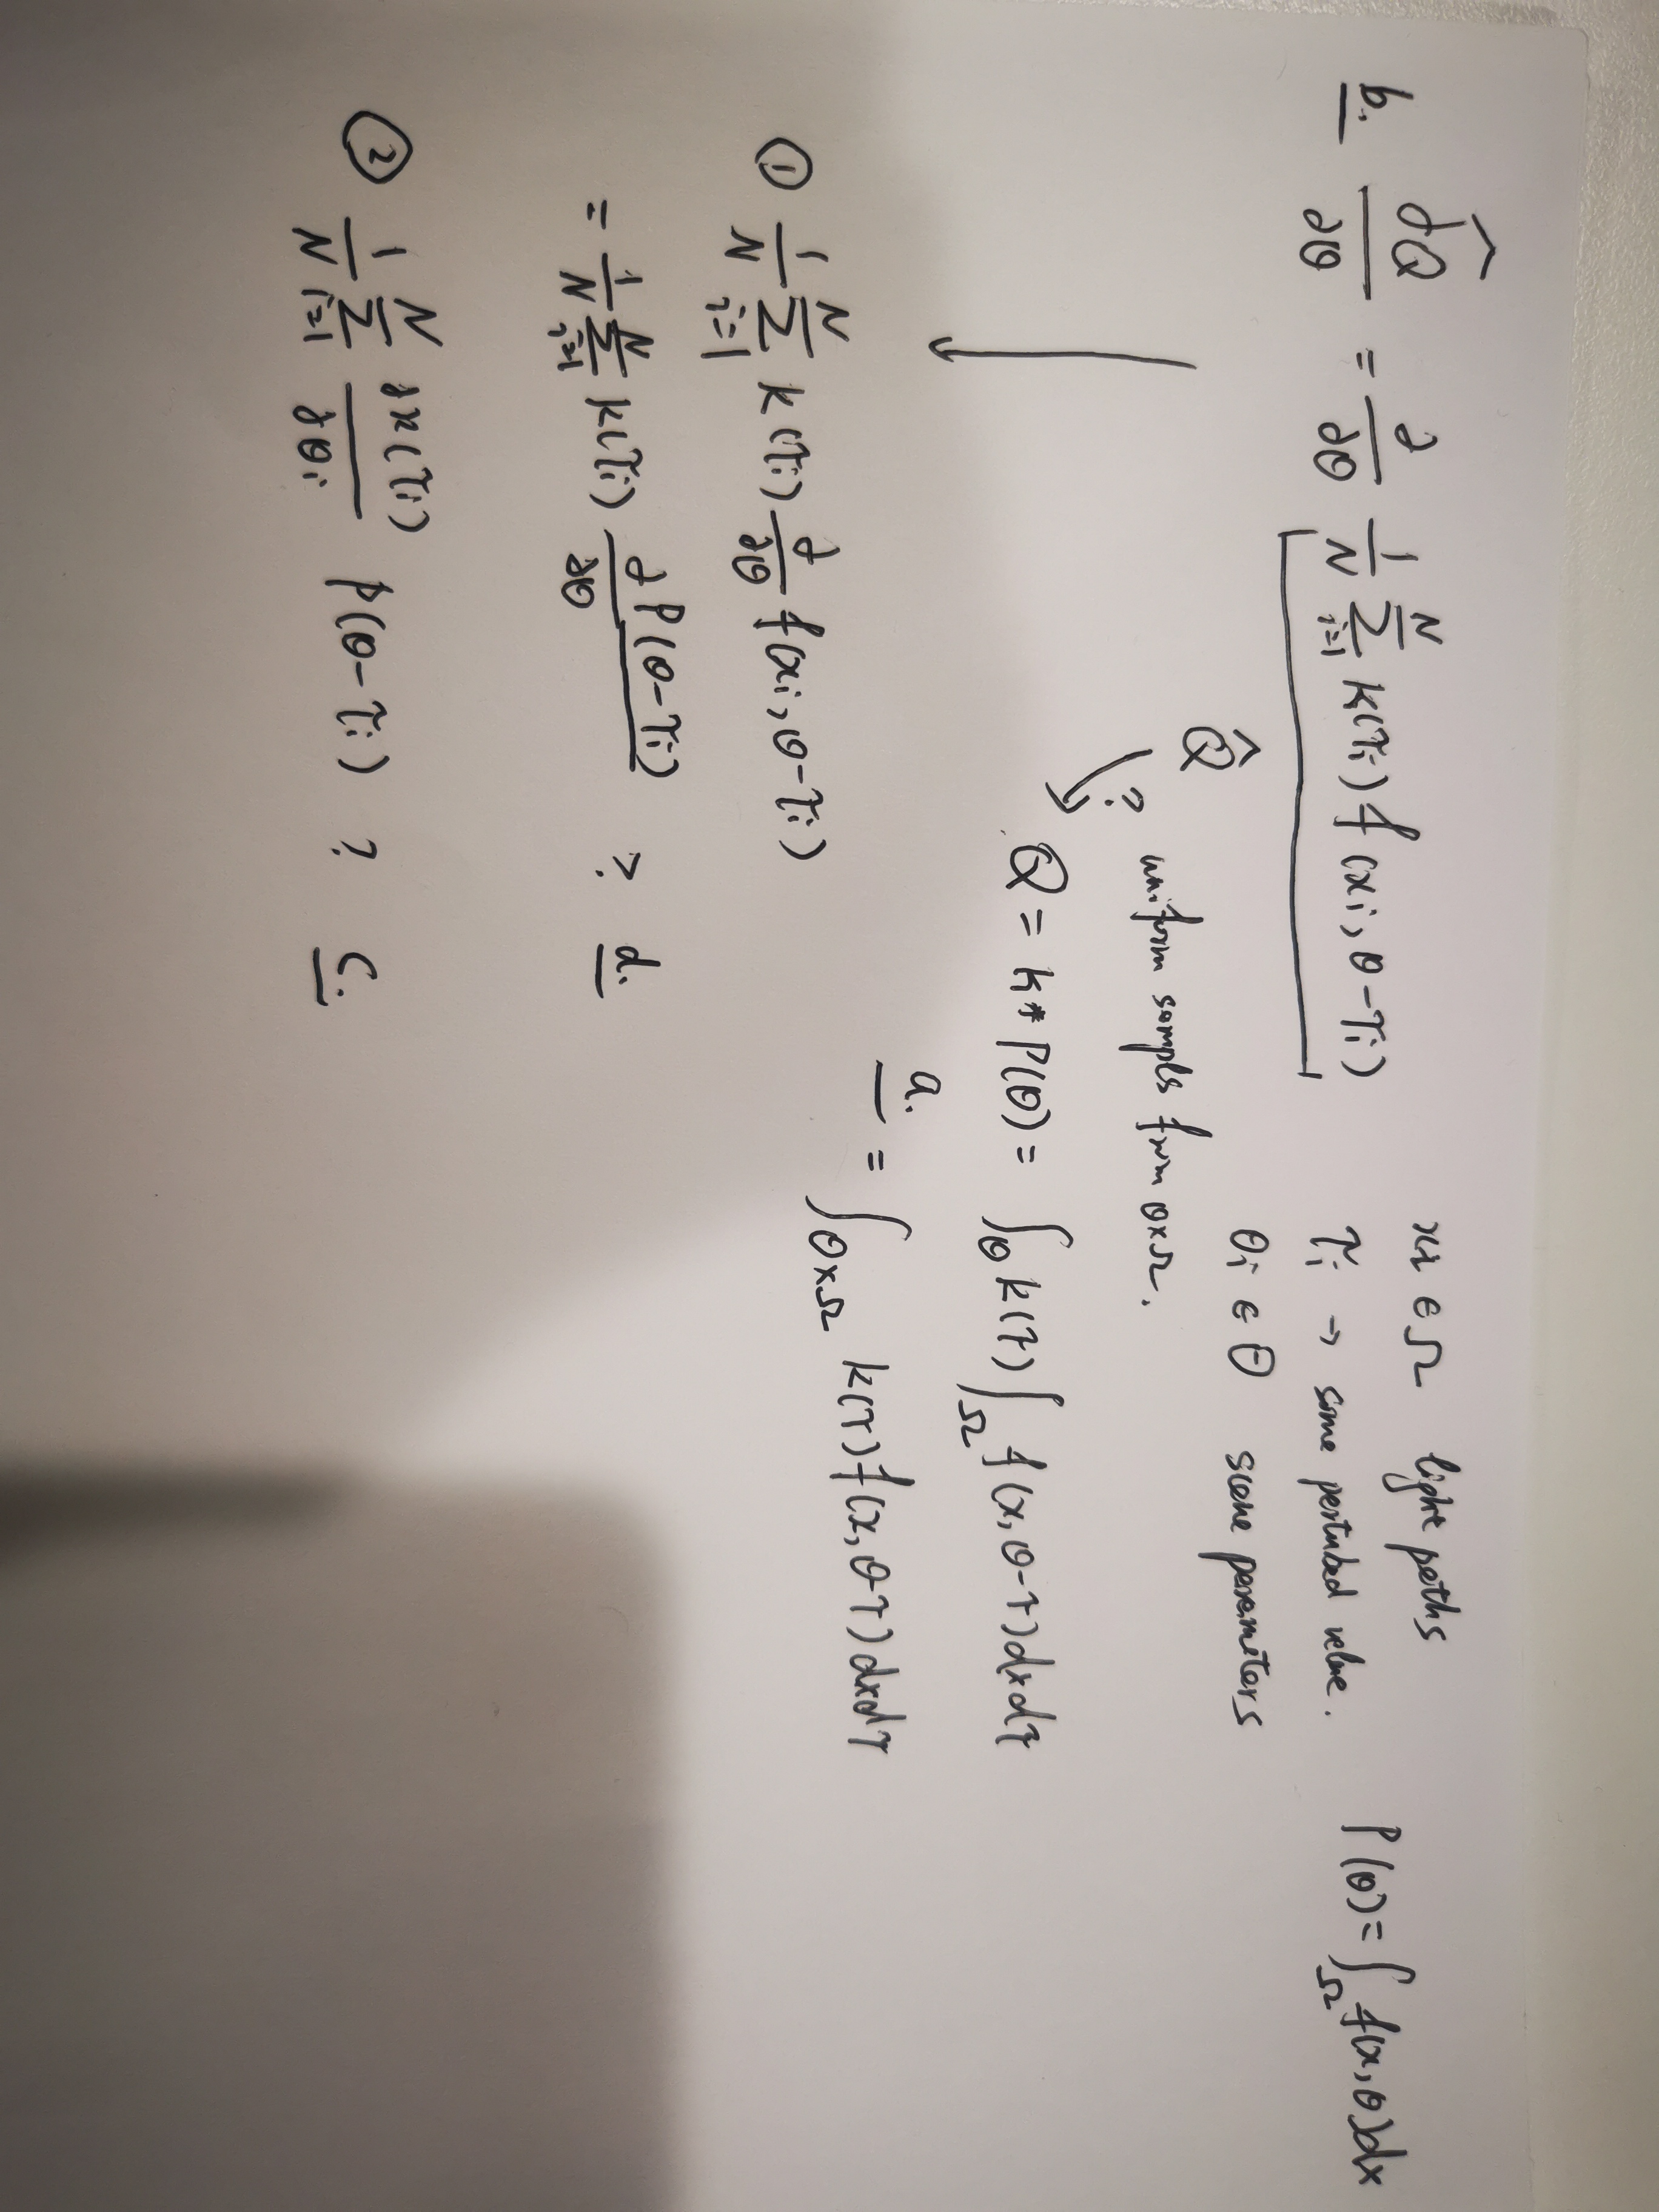 b. ∂Q̂/∂θ = ∂/∂θ 1/N Σ_{i=1}^{N} k(τᵢ) f(xᵢ, θ-τᵢ)
Q̂
xᵢ ∈ Ω light paths
τᵢ → some pertubed value.
θᵢ ∈ Θ scene parameters
P(θ) = ∫_Ω f(x, θ)dx
? uniform sampls from Θ×Ω.
Q = k * P(θ) = ∫_Θ k(τ) ∫_Ω f(x, θ-τ)dxdτ
a. = ∫_{Θ×Ω} k(τ) f(x, θ-τ) dxdτ
① 1/N Σ_{i=1}^{N} k(τᵢ) ∂/∂θ f(xᵢ, θ-τᵢ)
= 1/N Σ_{i=1}^{N} k(τᵢ) ∂P(θ-τᵢ)/∂θ ? d.
② 1/N Σ_{i=1}^{N} ∂κ(τᵢ)/∂θᵢ p(θ-τᵢ) ? c.